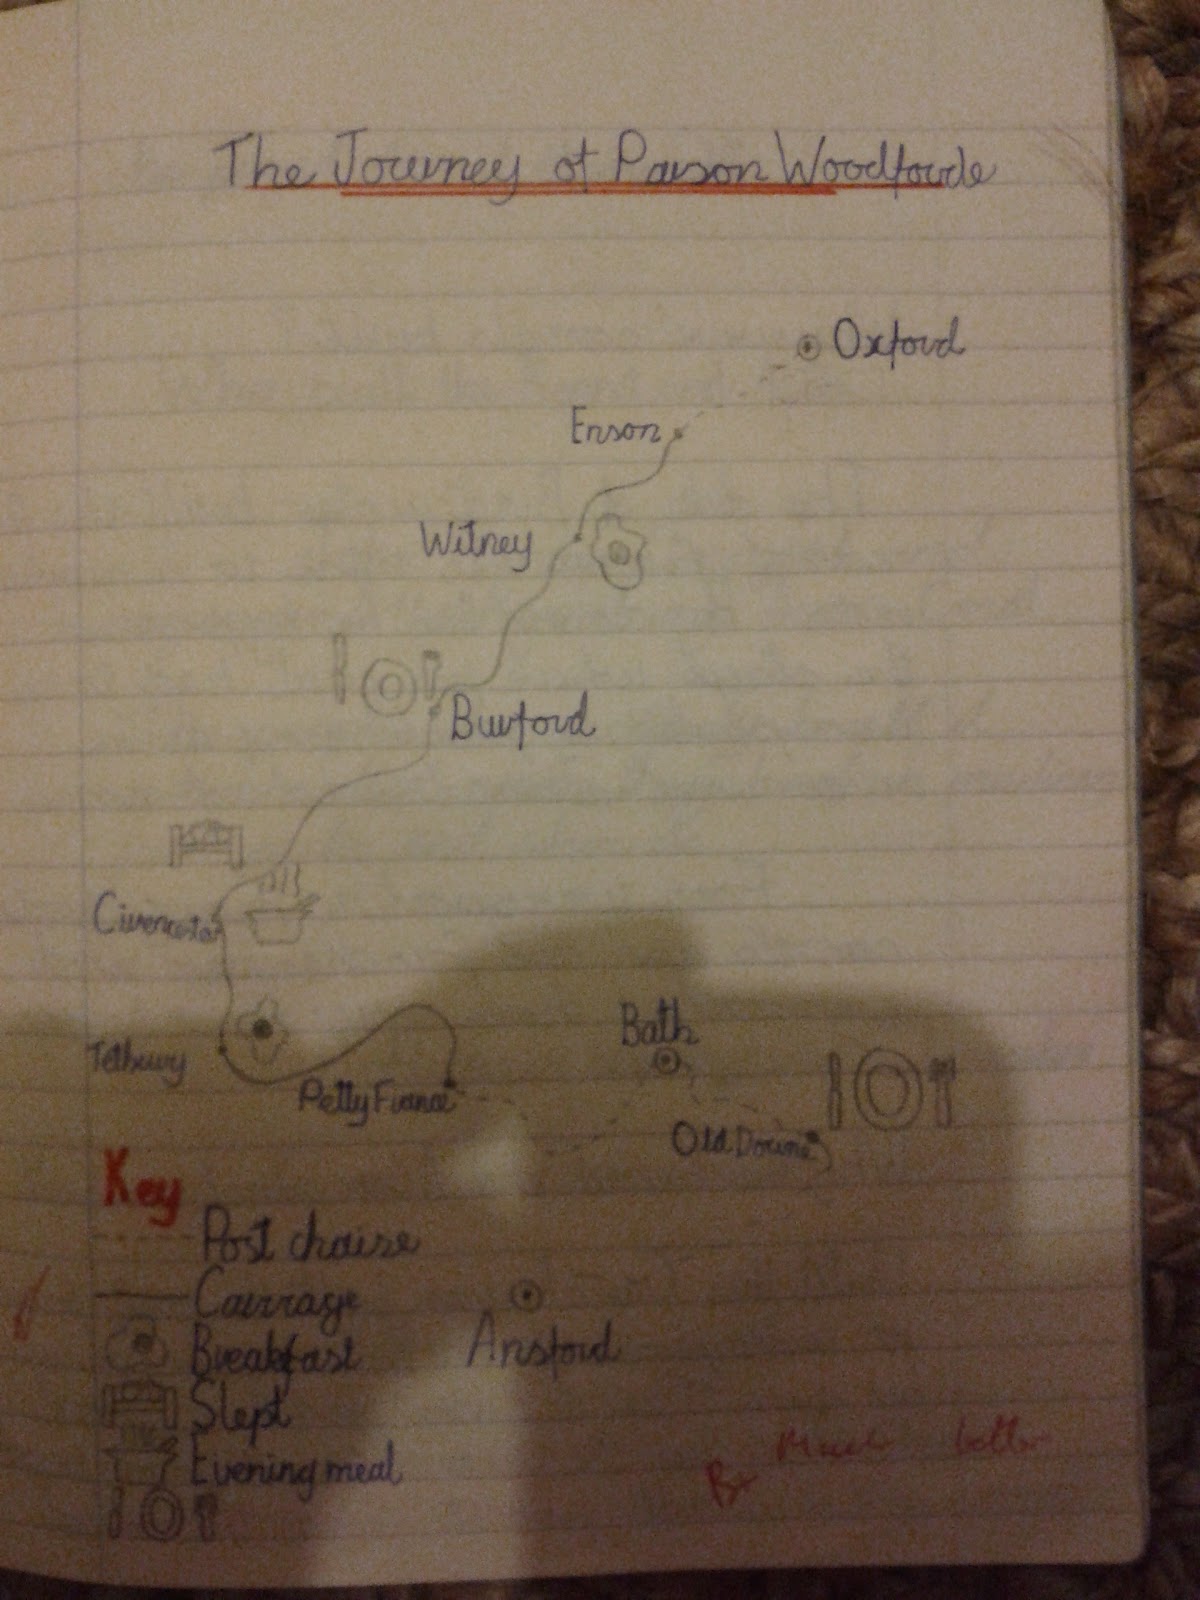 The Journey of Parson Woodforde
Oxford
Enson
Witney
Burford
Cirencester
Tetbury
Bath
Petty France
Old Downe
Key
Post chaise
Carrage
Ansford
Breakfast
Slept
Evening meal
Much better
B+